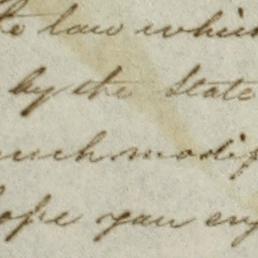 the law which
by the State
much modif
hope you enj